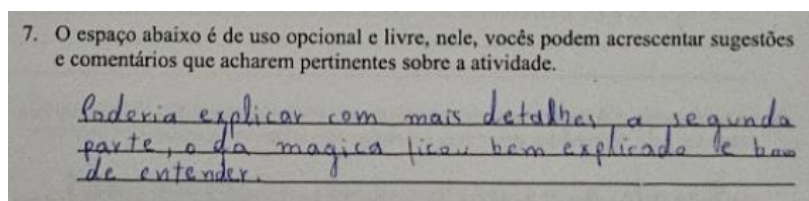 7. O espaço abaixo é de uso opcional e livre, nele, vocês podem acrescentar sugestões
e comentários que acharem pertinentes sobre a atividade.
Poderia explicar com mais detalhes, a segunda
parte, o da magica ficou bem explicado e bom
de entender.